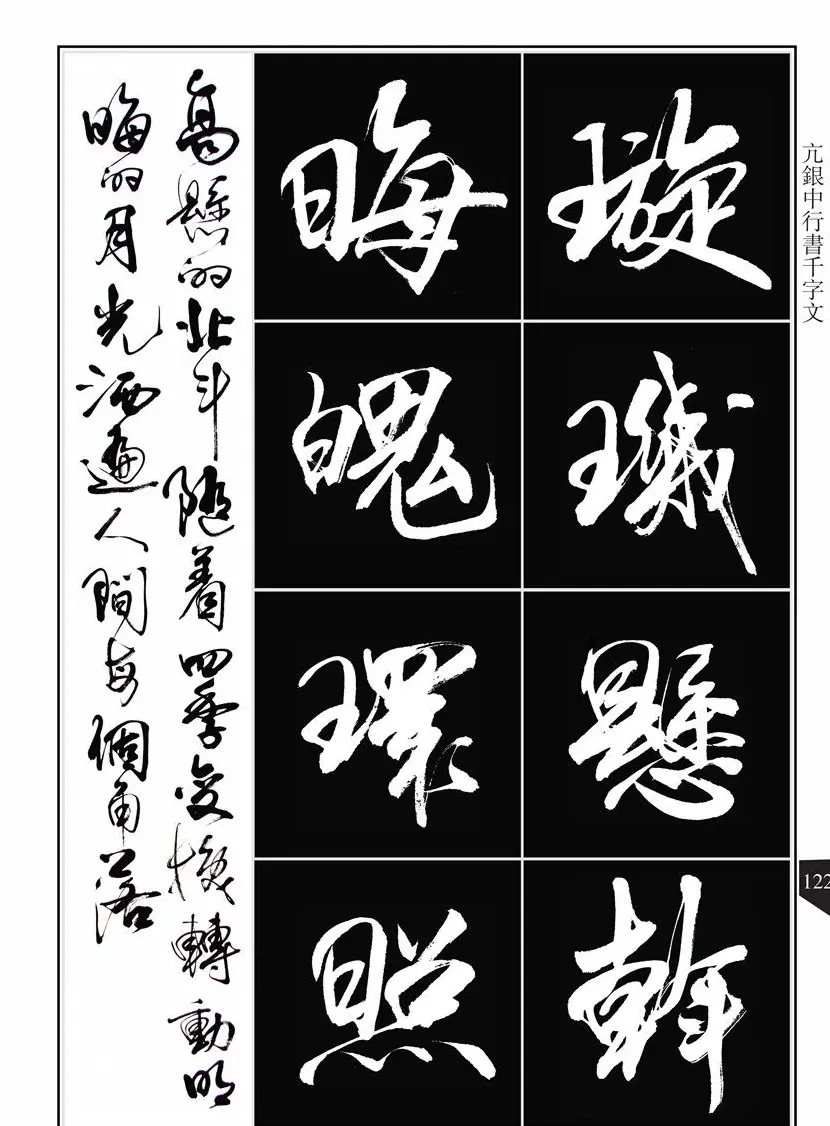 亢銀中行書千字文
122
璇璣懸斡
晦魄環照
高懸的北斗隨着四季变換轉動明
晦的月光洒遍人間每個角落